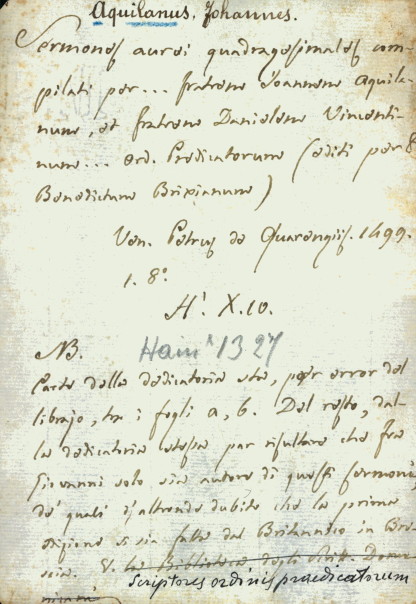 Aquilanus, Johannes.
Sermones aurei quadragesimales com-
pilati per... fratrem Joannem Aquila-
num, et fratrem Danielem Vincenti-
num... ord. Predicatorum (editi per F.
Benedictum Brixianum)
Ven. Petrus de Quarengijs. 1499.
1. 8°.
H. X. 10.
NB. Hain 1327
Parte della dedicatoria sta, per error del
librajo, tra i fogli a, b. Del resto, dal-
la dedicatoria stessa par risultare che fra
Giovanni solo sia autore di questi sermoni
de' quali d'altronde dubito che la prima
edizione si sia fatta dal Britannico in Bre-
scia. V. la Biblioteca degli Domi-
nicani
Scriptores ordinis praedicatorum